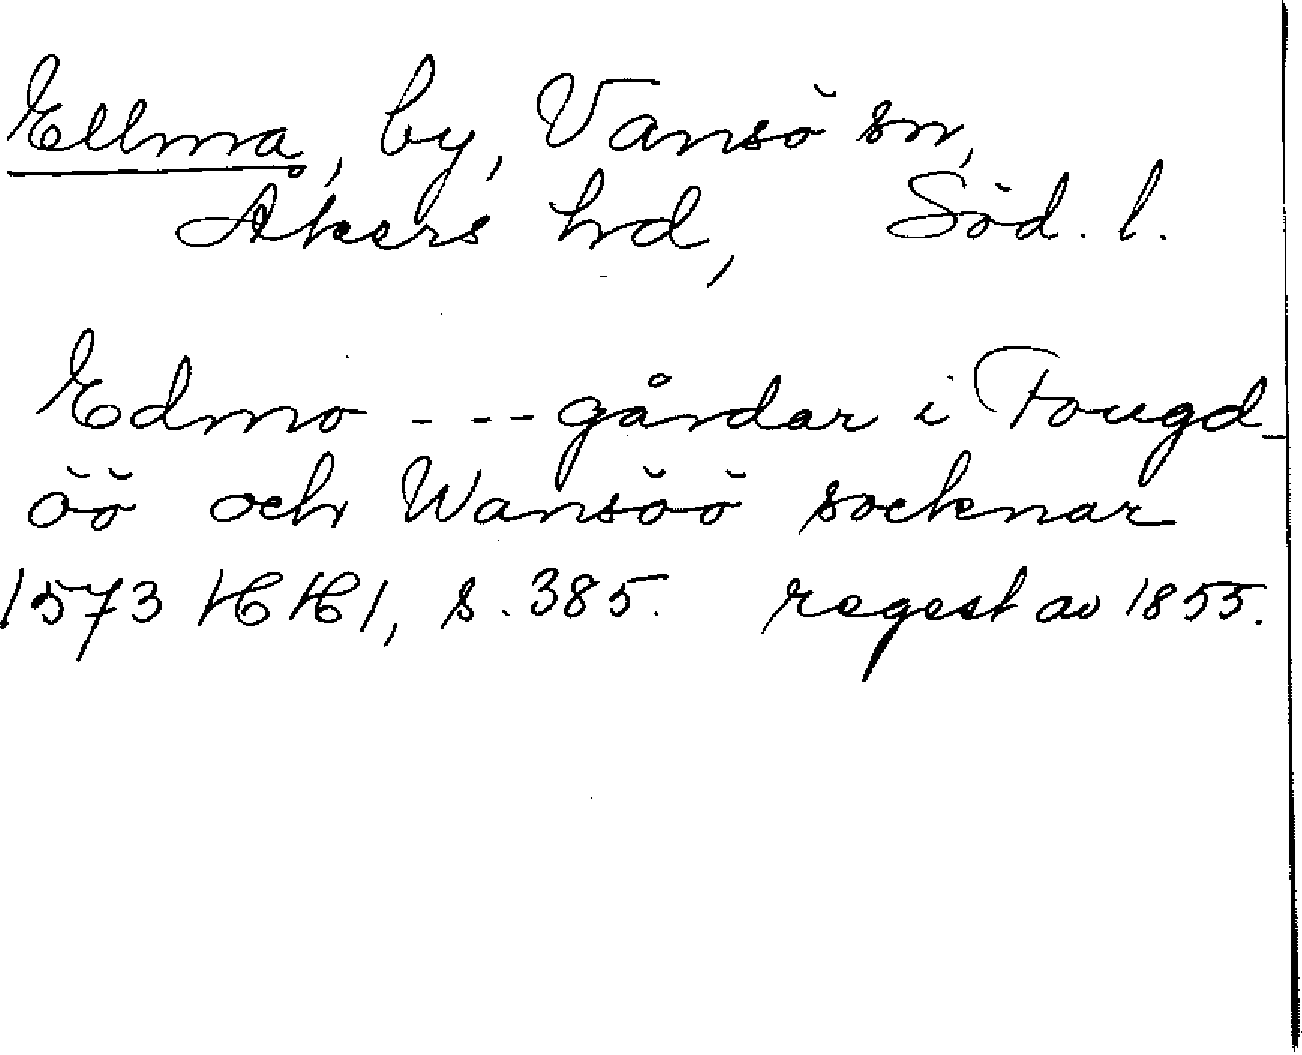 Ellma, by, Vansö sn,
Åkers hd, Söd. l.
Edmo - - - gårdar i Fougd-
öö och Wansöö socknar
1573 HH 1, s. 385. regest av 1855.